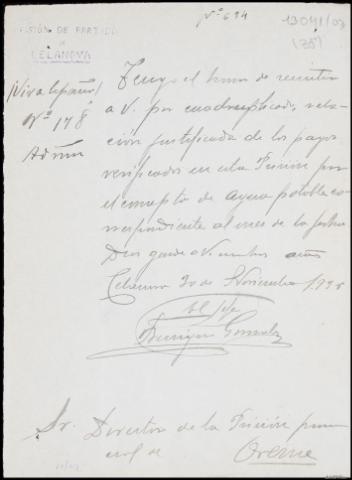 Nº 694
13041/03
(35)
PRISIÓN DE PARTIDO
DE
CELANOVA
¡Viva España!
Nº 178
Admon
Tengo el honor de remitir
a V. por cuadruplicado, rela-
ción justificada de los pagos
verificados en esta Prisión por
el concepto de agua potable co-
rrespondiente al mes de la fecha
Dios guarde a V. muchos años
Celanova 30 de Noviembre 1938
El Jefe
Gonzalez
Sr. Director de la Prisión provin
cial de
Orense